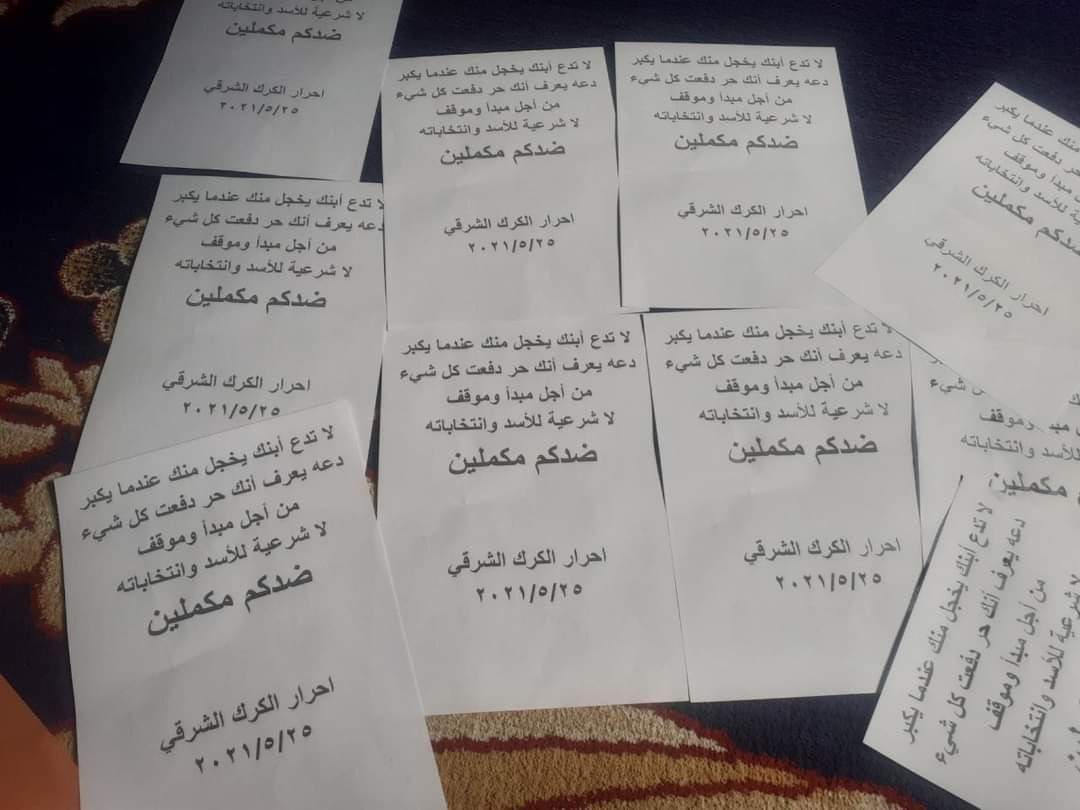 لا شرعية للأسد وانتخاباته
ضدكم مكملين
احرار الكرك الشرقي
٢٠٢١/٥/٢٥
لا تدع أبنك يخجل منك عندما يكبر
دعه يعرف أنك حر دفعت كل شيء
من أجل مبدأ وموقف
لا شرعية للأسد وانتخاباته
ضدكم مكملين
احرار الكرك الشرقي
٢٠٢١/٥/٢٥
لا تدع أبنك يخجل منك عندما يكبر
دعه يعرف أنك حر دفعت كل شيء
من أجل مبدأ وموقف
لا شرعية للأسد وانتخاباته
ضدكم مكملين
احرار الكرك الشرقي
٢٠٢١/٥/٢٥
منك عندما يكبر
حر دفعت كل شيء
مبدأ وموقف
للأسد وانتخاباته
ضدكم مكملين
احرار الكرك الشرقي
٢٠٢١/٥/٢٥
لا تدع أبنك يخجل منك عندما يكبر
دعه يعرف أنك حر دفعت كل شيء
من أجل مبدأ وموقف
لا شرعية للأسد وانتخاباته
ضدكم مكملين
احرار الكرك الشرقي
٢٠٢١/٥/٢٥
لا تدع أبنك يخجل منك عندما يكبر
دعه يعرف أنك حر دفعت كل شيء
من أجل مبدأ وموقف
لا شرعية للأسد وانتخاباته
ضدكم مكملين
احرار الكرك الشرقي
٢٠٢١/٥/٢٥
لا تدع أبنك يخجل منك عندما يكبر
دعه يعرف أنك حر دفعت كل شيء
من أجل مبدأ وموقف
لا شرعية للأسد وانتخاباته
ضدكم مكملين
احرار الكرك الشرقي
٢٠٢١/٥/٢٥
كل شيء
وموقف
للأسد وانتخاباته
مكملين
لا تدع أبنك يخجل منك عندما يكبر
دعه يعرف أنك حر دفعت كل شيء
من أجل مبدأ وموقف
لا شرعية للأسد وانتخاباته
ضدكم مكملين
احرار الكرك الشرقي
٢٠٢١/٥/٢٥
لا تدع أبنك يخجل منك عندما يكبر
دعه يعرف أنك حر دفعت كل شيء
من أجل مبدأ وموقف
لا شرعية للأسد وانتخاباته